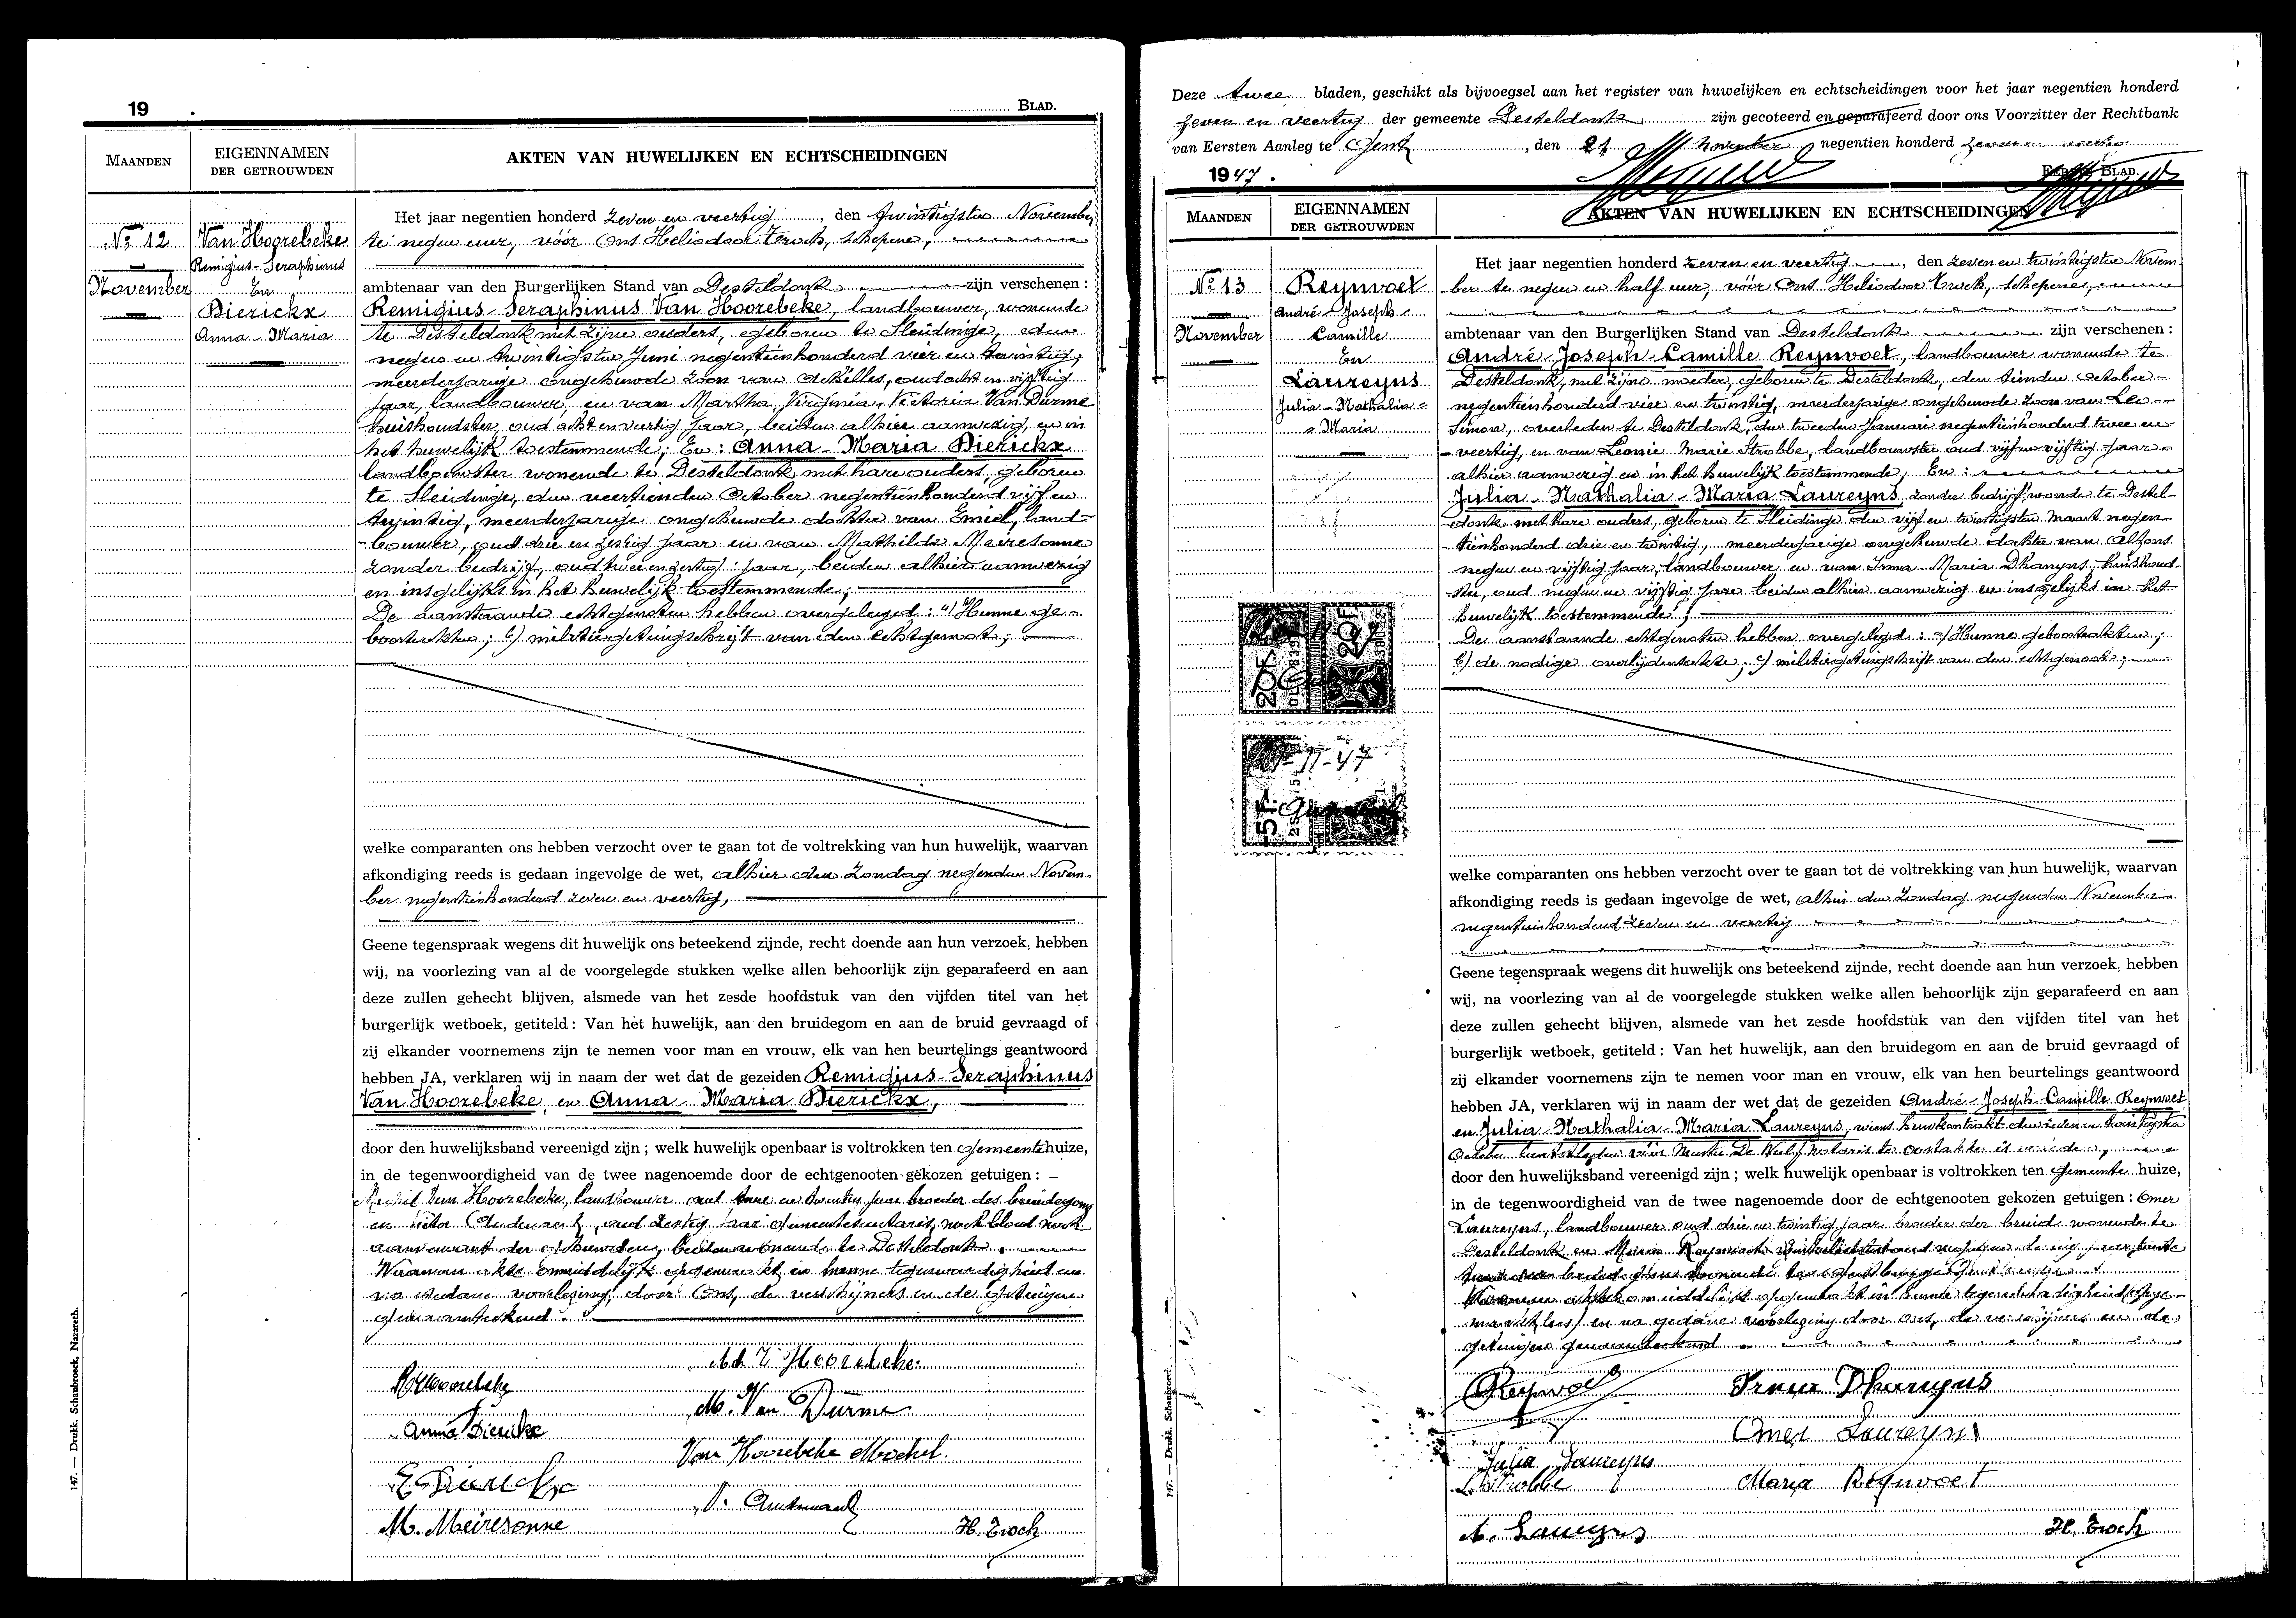 19 .
BLAD.
MAANDEN
EIGENNAMEN
DER GETROUWDEN
AKTEN VAN HUWELIJKEN EN ECHTSCHEIDINGEN
Nº 12
November
Van Hoorebeke
Remigius-Seraphinus
En
Dierickx
Anna-Maria
Het jaar negentien honderd zeven en veertig, den twintigsten November
te negen uur, vóór Ons Heliodoor Troch, schepene,
ambtenaar van den Burgerlijken Stand van Desteldonk zijn verschenen :
Remigius-Seraphinus Van Hoorebeke, landbouwer, wonende
te Desteldonk met zijne ouders, geboren te Sleidinge, den
negen en twintigsten Juni negentienhonderd vier en twintig,
meerderjarige ongehuwde zoon van Achilles, oud acht en vijftig
jaar, landbouwer en van Martha, Virginia, Victoria Van Durme
huishoudster, oud acht en veertig jaar, beiden alhier aanwezig, en in
het huwelijk toestemmende; En : Anna-Maria Dierickx
landbouwster wonende te Desteldonk met hare ouders, geboren
te Sleidinge, den veertienden October negentienhonderd vijf en
twintig, meerderjarige ongehuwde dochter van Emiel, land-
-bouwer, oud drie en zestig jaar en van Mathilde Meiresonne
zonder bedrijf, oud twee en zestig jaar, beiden alhier aanwezig
en insgelijks in het huwelijk toestemmende;
De aanstaande echtgenoten hebben overgelegd : a) Hunne ge-
boortakten; b) militiegetuigschrift van den echtgenoot;
welke comparanten ons hebben verzocht over te gaan tot de voltrekking van hun huwelijk, waarvan
afkondiging reeds is gedaan ingevolge de wet, alhier den Zondag negenden Novem-
ber negentienhonderd zeven en veertig,
Geene tegenspraak wegens dit huwelijk ons beteekend zijnde, recht doende aan hun verzoek, hebben
wij, na voorlezing van al de voorgelegde stukken welke allen behoorlijk zijn geparafeerd en aan
deze zullen gehecht blijven, alsmede van het zesde hoofdstuk van den vijfden titel van het
burgerlijk wetboek, getiteld : Van het huwelijk, aan den bruidegom en aan de bruid gevraagd of
zij elkander voornemens zijn te nemen voor man en vrouw, elk van hen beurtelings geantwoord
hebben JA, verklaren wij in naam der wet dat de gezeiden Remigius-Seraphinus
Van Hoorebeke, en Anna Maria Dierickx,
door den huwelijksband vereenigd zijn ; welk huwelijk openbaar is voltrokken ten Gemeentehuize,
in de tegenwoordigheid van de twee nagenoemde door de echtgenooten gekozen getuigen : -
Van Hoorebeke, landbouwer oud twee en twintig jaar broeder des bruidegoms
en oud zestig jaar Gemeentesecretaris, noch bloed noch
aanverwant der gehuwden, beiden wonende te Desteldonk.
Waarvan akte onmiddelijk opgemaakt in hunne tegenwoordigheid en
na gedane voorlezing, door Ons, de verschijners en de getuigen
geteekend.
R VHoorebeke
Ach V Hoorebeke.
M. Van Durme
Anna Dierickx
Van Hoorebeke Michel.
E Dierickx
M. Meiresonne
H. Troch
147. — Drukk. Schaubroeck, Nazareth.
Deze twee bladen, geschikt als bijvoegsel aan het register van huwelijken en echtscheidingen voor het jaar negentien honderd
zeven en veertig der gemeente Desteldonk, zijn gecoteerd en geparafeerd door ons Voorzitter der Rechtbank
van Eersten Aanleg te Gent, den 21 November negentien honderd zeven en veertig
1947 .
EERSTE BLAD.
MAANDEN
EIGENNAMEN
DER GETROUWDEN
AKTEN VAN HUWELIJKEN EN ECHTSCHEIDINGEN
Nº 13
November
Reynvoet
André-Joseph-
Camille
En
Laureyns
Julia-Nathalia-
-Maria
20 F.
20 F
5 F
-11-47
Het jaar negentien honderd zeven en veertig, den zeven en twintigsten Novem-
ber te negen en half uur, vóór Ons Heliodoor Troch, schepene,
ambtenaar van den Burgerlijken Stand van Desteldonk zijn verschenen :
André-Joseph-Camille Reynvoet, landbouwer wonende te
Desteldonk, met zijne moeder, geboren te Desteldonk, den tienden October
negentienhonderd vier en twintig, meerderjarige ongehuwde zoon van Leo-
Simon, overleden te Desteldonk, den tweeden Januari negentienhonderd twee en
-veertig, en van Leonie Marie Strobbe, landbouwster oud vijf en vijftig jaar
alhier aanwezig en in het huwelijk toestemmende; En :
Julia-Nathalia-Maria Laureyns, zonder bedrijf wonende te Destel-
donk met hare ouders, geboren te Sleidinge den vijf en twintigsten Maart negen-
tienhonderd drie en twintig, meerderjarige ongehuwde dochter van Alfons
negen en vijftig jaar, landbouwer en van Irma Maria Dhamyns, huishoud-
ster, oud negen en vijftig jaar beiden alhier aanwezig en insgelijks in het
huwelijk toestemmende;
De aanstaande echtgenoten hebben overgelegd : a) Hunne geboortakten;
b) de nodige overlijdensakte; c) militiegetuigschrift van den echtgenoot;
welke comparanten ons hebben verzocht over te gaan tot de voltrekking van hun huwelijk, waarvan
afkondiging reeds is gedaan ingevolge de wet, alhier den Zondag negenden November
negentienhonderd zeven en veertig
Geene tegenspraak wegens dit huwelijk ons beteekend zijnde, recht doende aan hun verzoek, hebben
wij, na voorlezing van al de voorgelegde stukken welke allen behoorlijk zijn geparafeerd en aan
deze zullen gehecht blijven, alsmede van het zesde hoofdstuk van den vijfden titel van het
burgerlijk wetboek, getiteld : Van het huwelijk, aan den bruidegom en aan de bruid gevraagd of
zij elkander voornemens zijn te nemen voor man en vrouw, elk van hen beurtelings geantwoord
hebben JA, verklaren wij in naam der wet dat de gezeiden André-Joseph-Camille Reynvoet
en Julia-Nathalia-Maria Laureyns, wiens huwkontrakt den zeven en twintigsten
October vóór Meester De Weilf notaris te Oostakker is verleden,
door den huwelijksband vereenigd zijn ; welk huwelijk openbaar is voltrokken ten Gemeente huize,
in de tegenwoordigheid van de twee nagenoemde door de echtgenooten gekozen getuigen : Omer
Laureyns, landbouwer oud drie en twintig jaar broeder der bruid wonende te
Desteldonk en Maria Reynvoet
onmiddelijk opgemaakt in hunne tegenwoordigheid
en na gedane voorlezing door ons, de verschijners en de
getuigen
Reynvoet
Irma Dhamyns
Omer Laureyns
Julia Laureyns
L. Strobbe
Maria Reynvoet
A. Laureyns
H. Troch
147. — Drukk. Schaubroeck